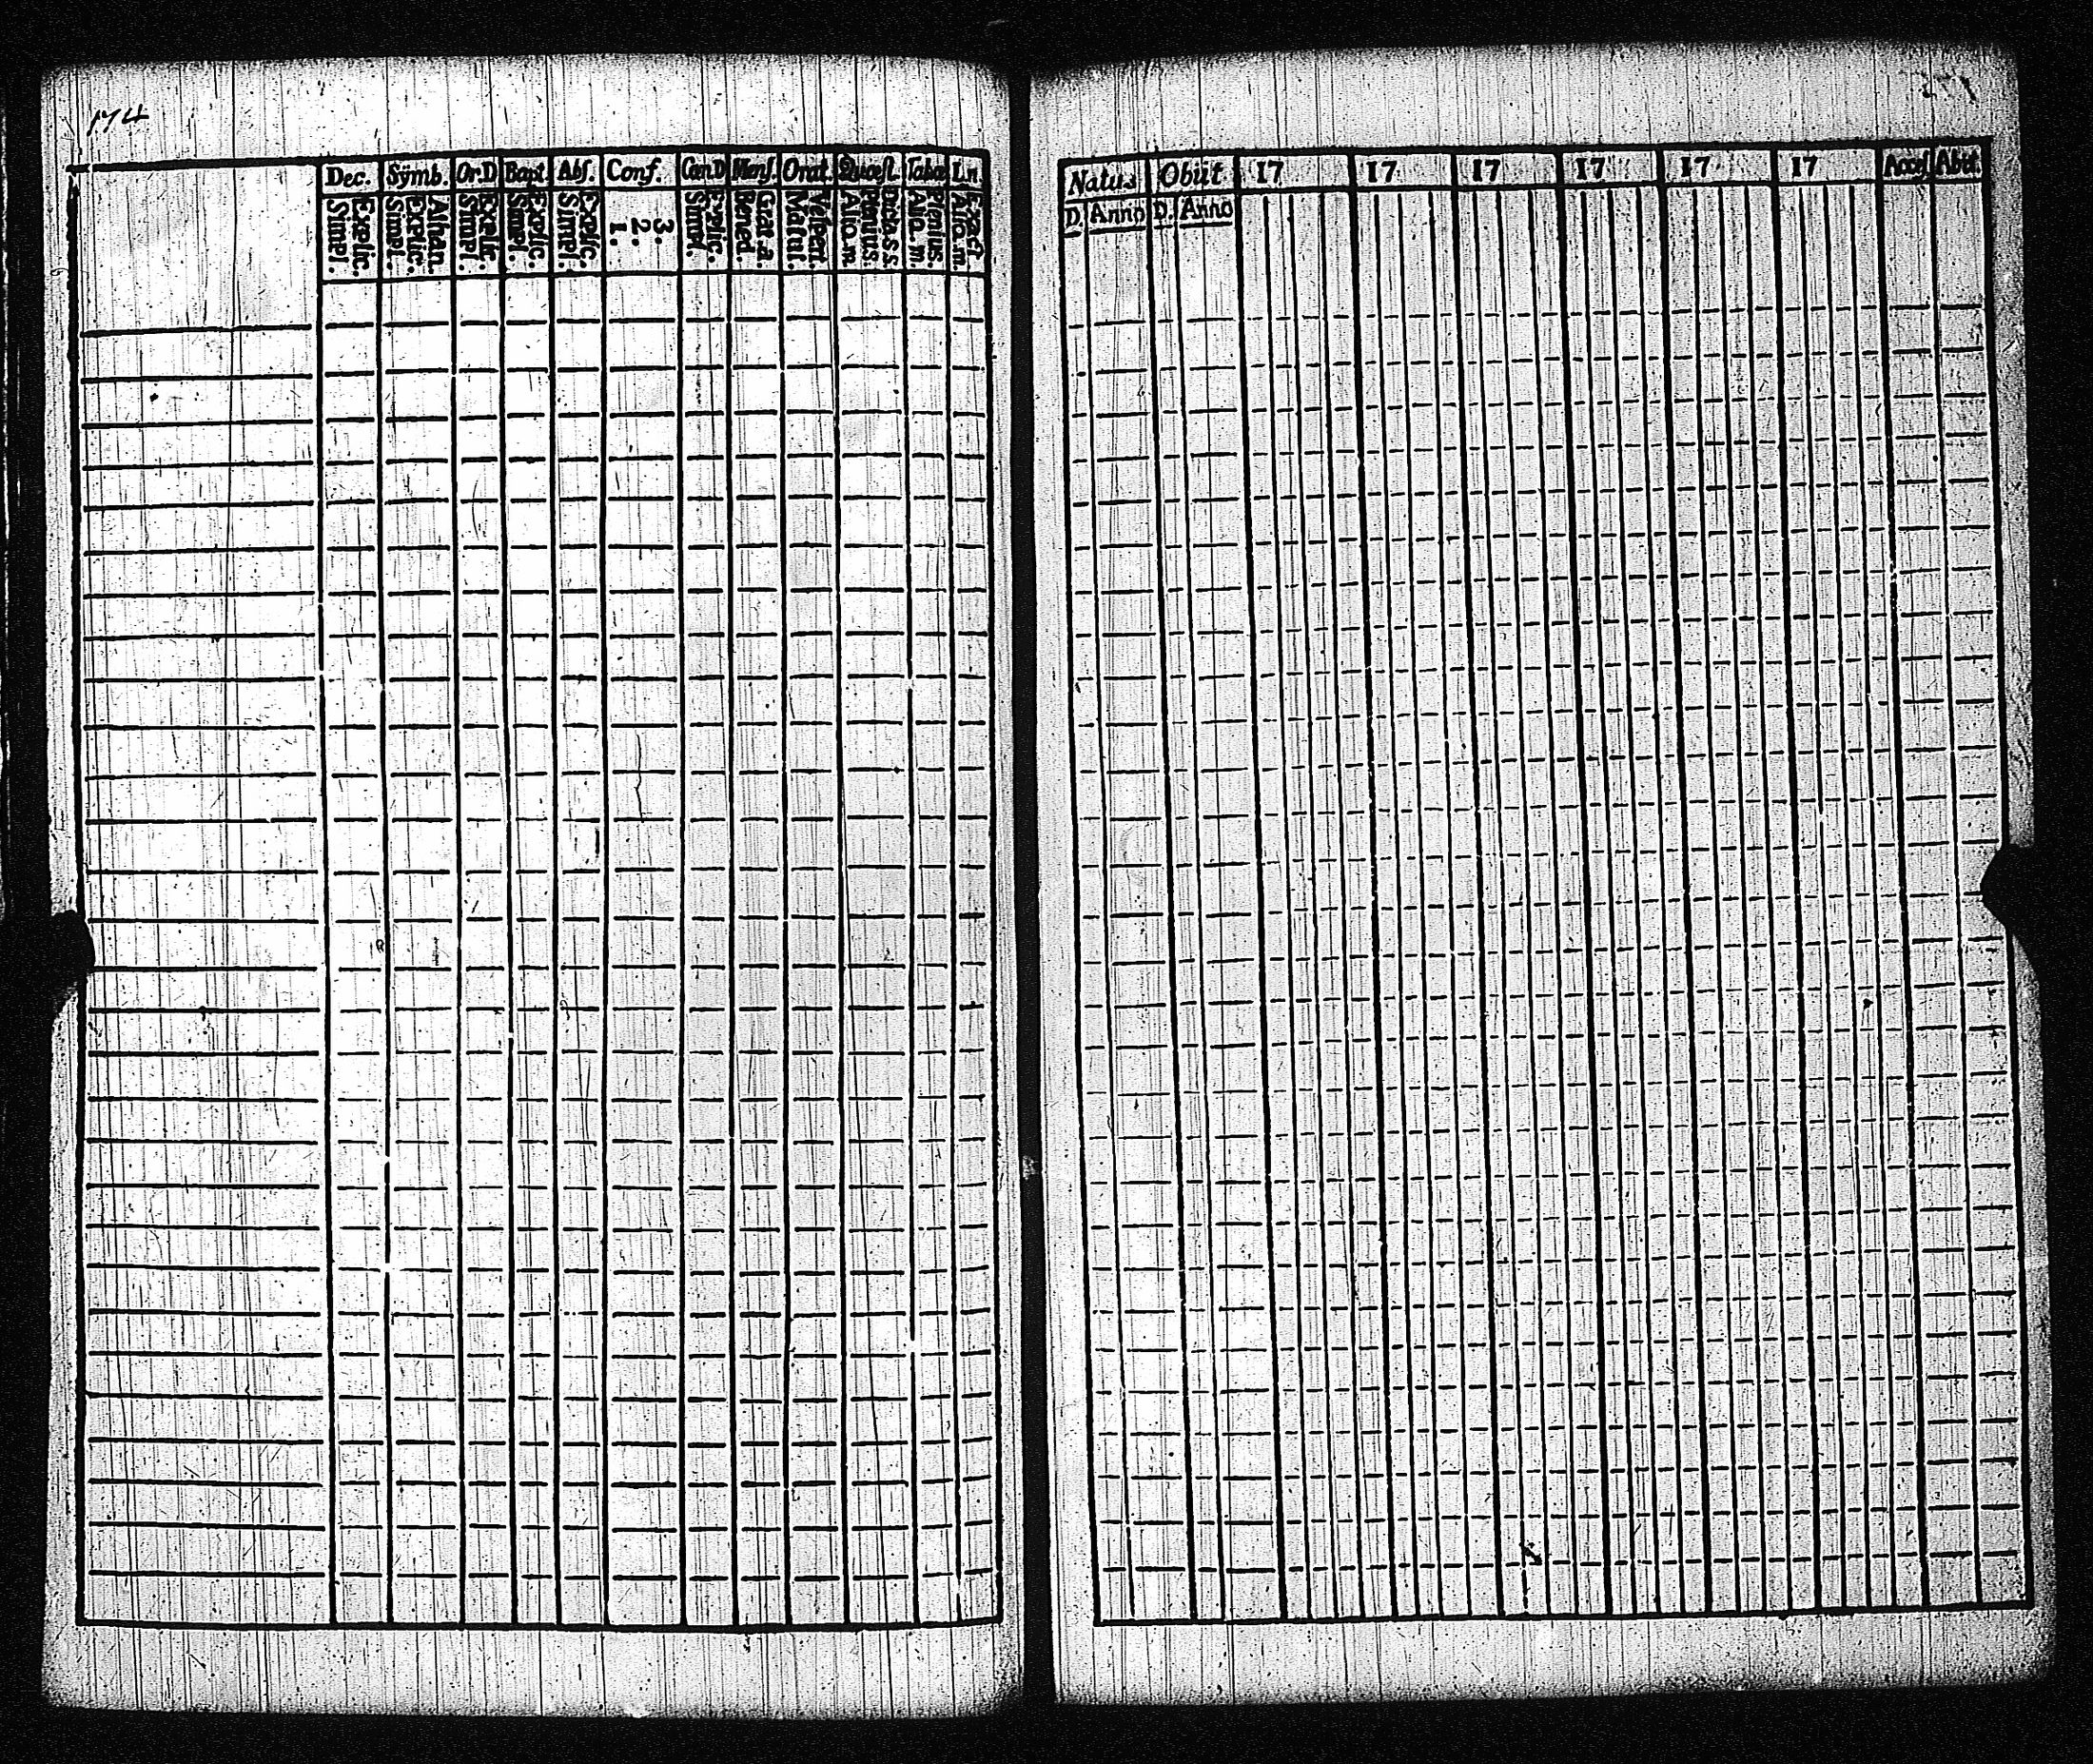 174
Dec. Sÿmb. Or.D Bapt. Abſ. Conf. Cœn.D Menſ. Orat. Quæſt. Tabæ L.n.
Simpl. Explic.
Simpl. Explic. Athan.
Simpl. Explic.
Simpl. Explic.
Simpl. Explic.
1. 2. 3.
Simpl. Explic.
Bened. Grat. a.
Matut. Veſpert.
Alio. m Plenius. Dicta. s. s.
Alio. m. Plenius.
Alio. m. Exact
Natus Obiit 17 17 17 17 17 17 Acceſ Abiit
D. Anno D. Anno